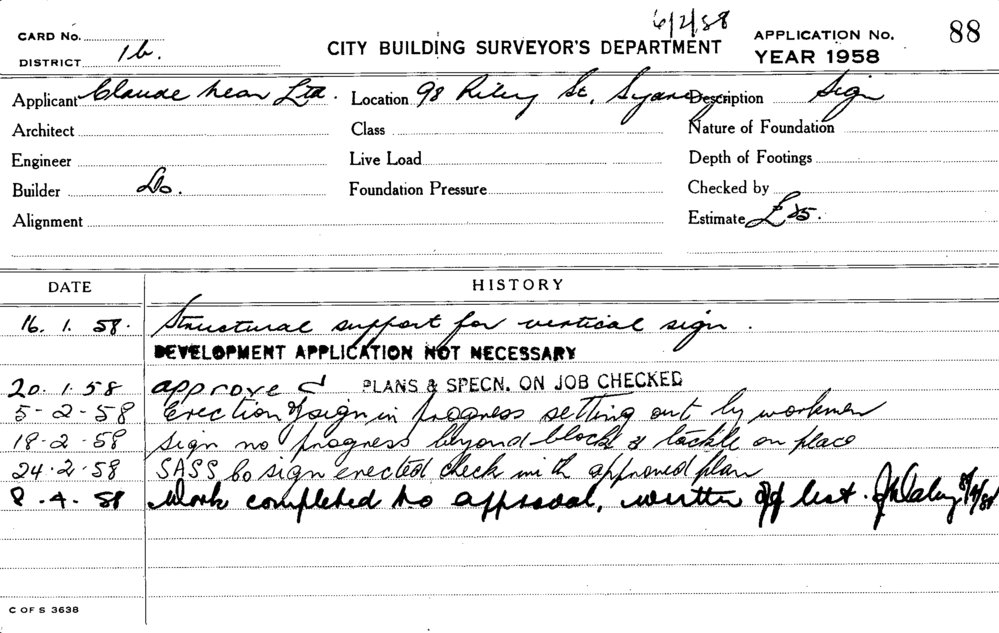 6/2/58
CARD No. CITY BUILDING SURVEYOR'S DEPARTMENT APPLICATION No. 88
DISTRICT 1b. YEAR 1958
Applicant Claude Neon Ltd. Location 98 Riley St, Sydney Description Sign
Architect Class Nature of Foundation
Engineer Live Load Depth of Footings
Builder Do. Foundation Pressure Checked by
Alignment Estimate £25.
DATE HISTORY
16. 1. 58. Structural support for vertical sign.
DEVELOPMENT APPLICATION NOT NECESSARY
20.1.58 approved PLANS & SPECN. ON JOB CHECKED
5-2-58 Erection of sign in progress setting out by workmen
18-2-58 Sign no progress beyond block & tackle on place
24.2.58 SASS Co sign erected check with approved plan
8.4.58 Work completed to approval, written off list. 8/4/58
C OF S 3638